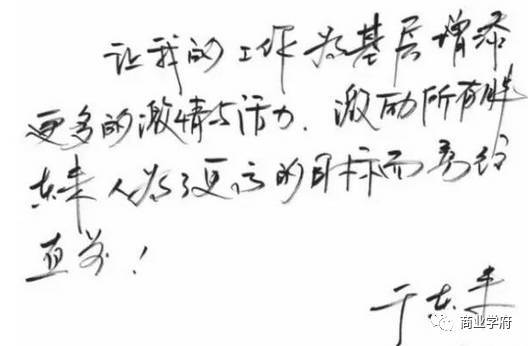 让我的工作为基层增添
更多的激情与活力,激励所有胖
东来人为了更高的目标而勇往
直前!
于东来
商业学府